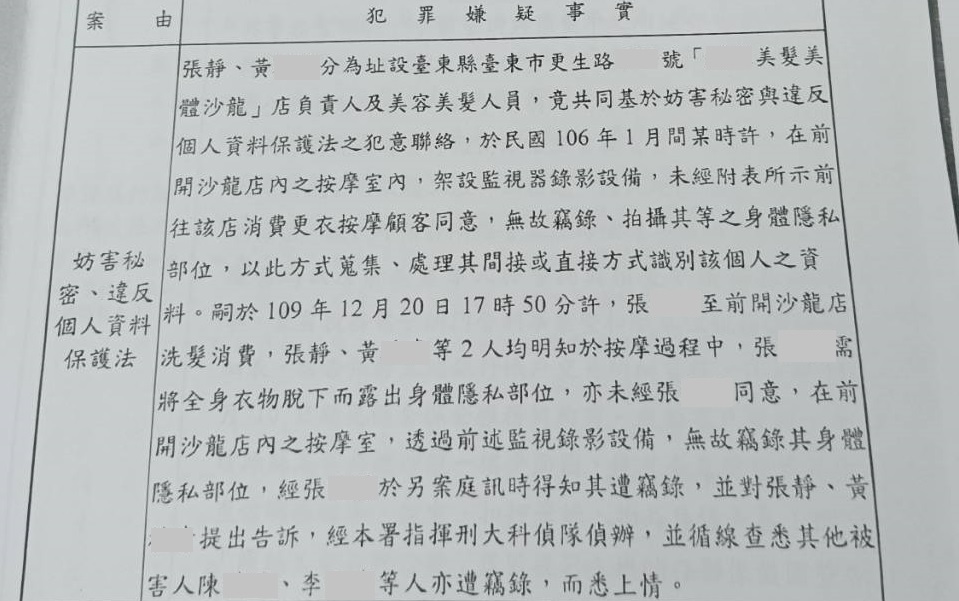 案由 犯罪嫌疑事實
妨害秘
密、違反
個人資料
保護法
張靜、黃 分為址設臺東縣臺東市更生路 號「 美髮美
體沙龍」店負責人及美容美髮人員，竟共同基於妨害秘密與違反
個人資料保護法之犯意聯絡，於民國106年1月間某時許，在前
開沙龍店內之按摩室內，架設監視器錄影設備，未經附表所示前
往該店消費更衣按摩顧客同意，無故竊錄、拍攝其等之身體隱私
部位，以此方式蒐集、處理其間接或直接方式識別該個人之資
料。嗣於109年12月20日17時50分許，張 至前開沙龍店
洗髮消費，張靜、黃 等2人均明知於按摩過程中，張 需
將全身衣物脫下而露出身體隱私部位，亦未經張 同意，在前
開沙龍店內之按摩室，透過前述監視錄影設備，無故竊錄其身體
隱私部位，經張 於另案庭訊時得知其遭竊錄，並對張靜、黃
提出告訴，經本署指揮刑大科偵隊偵辦，並循線查悉其他被
害人陳 、李 等人亦遭竊錄，而悉上情。